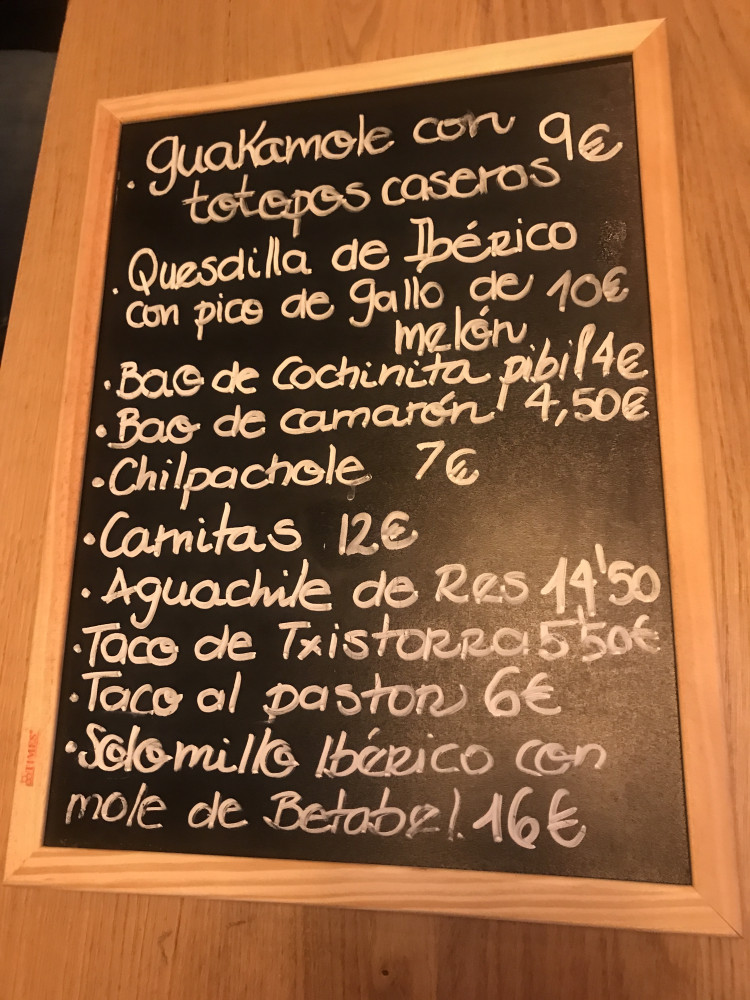 . guaKamole con 9€
totopos caseros
. Quesdilla de Ibérico
con pico de gallo de 10€
melón
. Bao de Cochinita pibil 4€
. Bao de camarón 4,50€
. Chilpachole 7€
. Carnitas 12€
. Aguachile de Res 14'50
. Taco de Txistorra 5'50€
. Taco al pastor 6€
. Solomillo Ibérico con
mole de Betabel. 16€